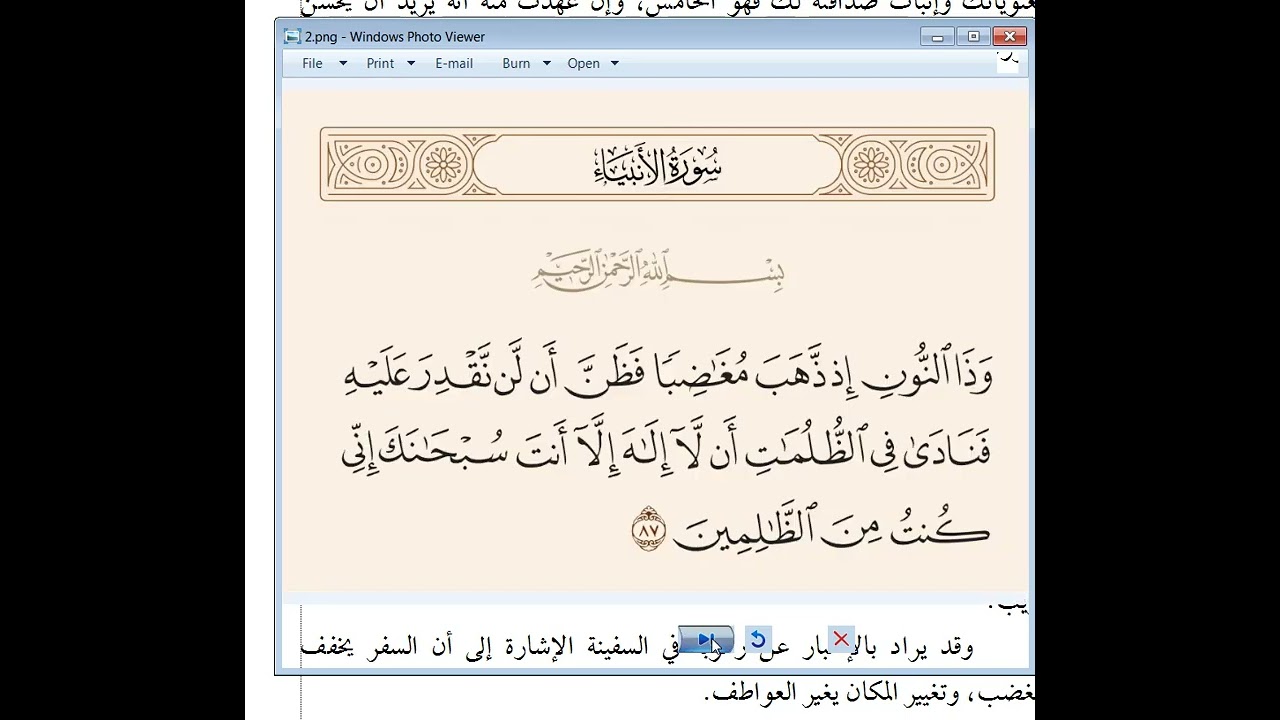 وإثبات صداقته لك فهو الخامس، وإن عهدت منه أنه يريد أن يحسن
2.png - Windows Photo Viewer
File Print E-mail Burn Open
سُورَةُ الأَنبِيَاءِ
بِسْمِ ٱللَّهِ ٱلرَّحْمَٰنِ ٱلرَّحِيمِ
وَذَا ٱلنُّونِ إِذ ذَّهَبَ مُغَٰضِبًا فَظَنَّ أَن لَّن نَّقْدِرَ عَلَيْهِ
فَنَادَىٰ فِى ٱلظُّلُمَٰتِ أَن لَّآ إِلَٰهَ إِلَّآ أَنتَ سُبْحَٰنَكَ إِنِّى
كُنتُ مِنَ ٱلظَّٰلِمِينَ ٨٧
وقد يراد في السفينة الإشارة إلى أن السفر يخفف
وتغيير المكان يغير العواطف.